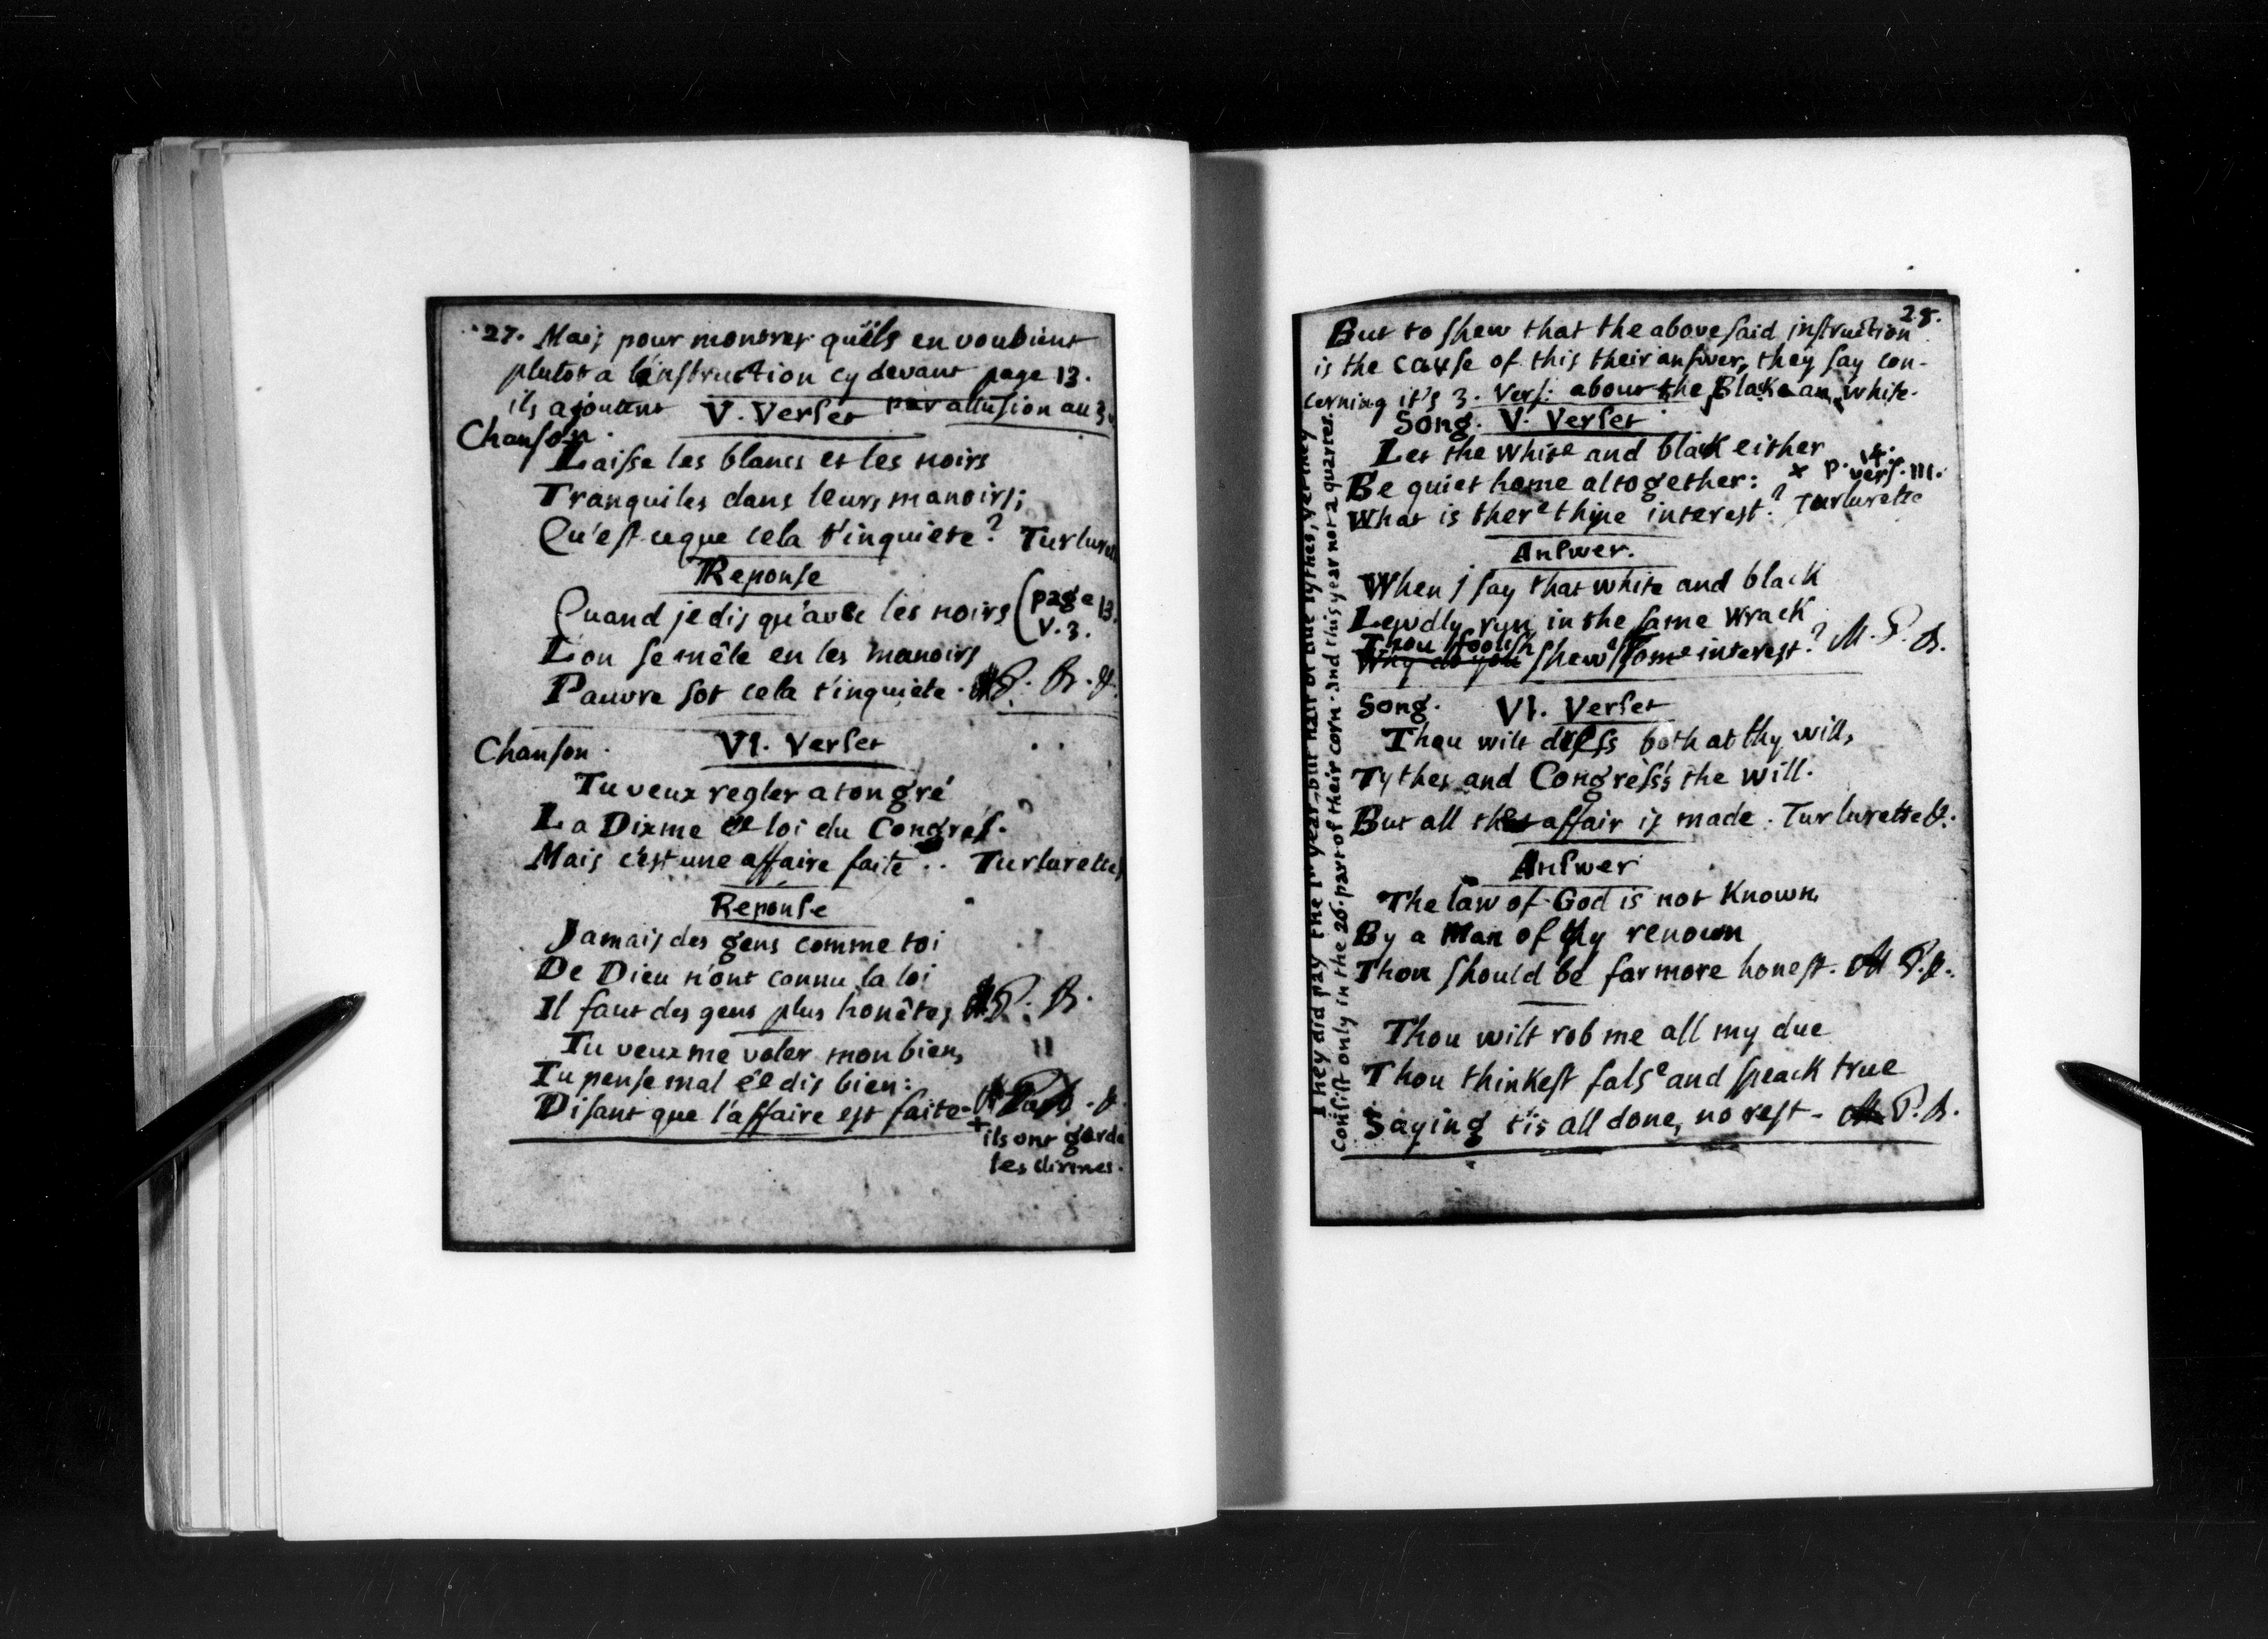 27. Mais pour montrer qu'ils en vouloient
plutot a l'instruction cy devant page 13.
ils ajoutent par allusion au 3.
V. Verset
Chanson.
Laisse les blancs et les noirs
Tranquiles dans leurs manoirs;
Qu'est ceque cela t'inquiete? Turlure
Reponse
Quand je dis qu'avec les noirs (page 13.
V. 3.
L'on se mêle en les manoirs
Pauvre sot cela t'inquiete. P. B. &.
Chanson. VI. Verset
Tu veux regler a ton gré
La Dixme et loi du Congres.
Mais c'est une affaire faite .. Turlurette
Reponse
Jamais des gens comme toi
De Dieu n'ont connu la loi
Il faut des gens plus honêtes P. B.
Tu veux me voler mon bien,
Tu pense mal et dis bien:
Disant que l'affaire est faite. &.
+ ils ont garde
les dixmes.
28.
But to shew that the abovesaid instruction
is the cause of this their answer, they say con-
cerning it's 3. Vers: about the Blak an white.
Song. V. Verset
Let the white and black either
Be quiet home altogether: x p. 14. vers. III.
What is there thine interest? Turlurette
Answer.
When j say that white and black
Lewdly run in the same wrack
Thou foolish
Why do you shew some interest? M. P. B.
Song. VI. Verset
Thou wilt dress both at thy will,
Tythes and Congress's the will.
But all that affair is made. Turlurette &.
Answer
The law of God is not Known
By a Man of thy renown
Thou should be far more honest. M P. &.
Thou wilt rob me all my due
Thou thinkest false and speack true
Saying t'is all done, no rest - M. P. B.
They did pay the year but half of due tythes, yet they
Consist only in the 26. part of their corn. and this year not a quarter.